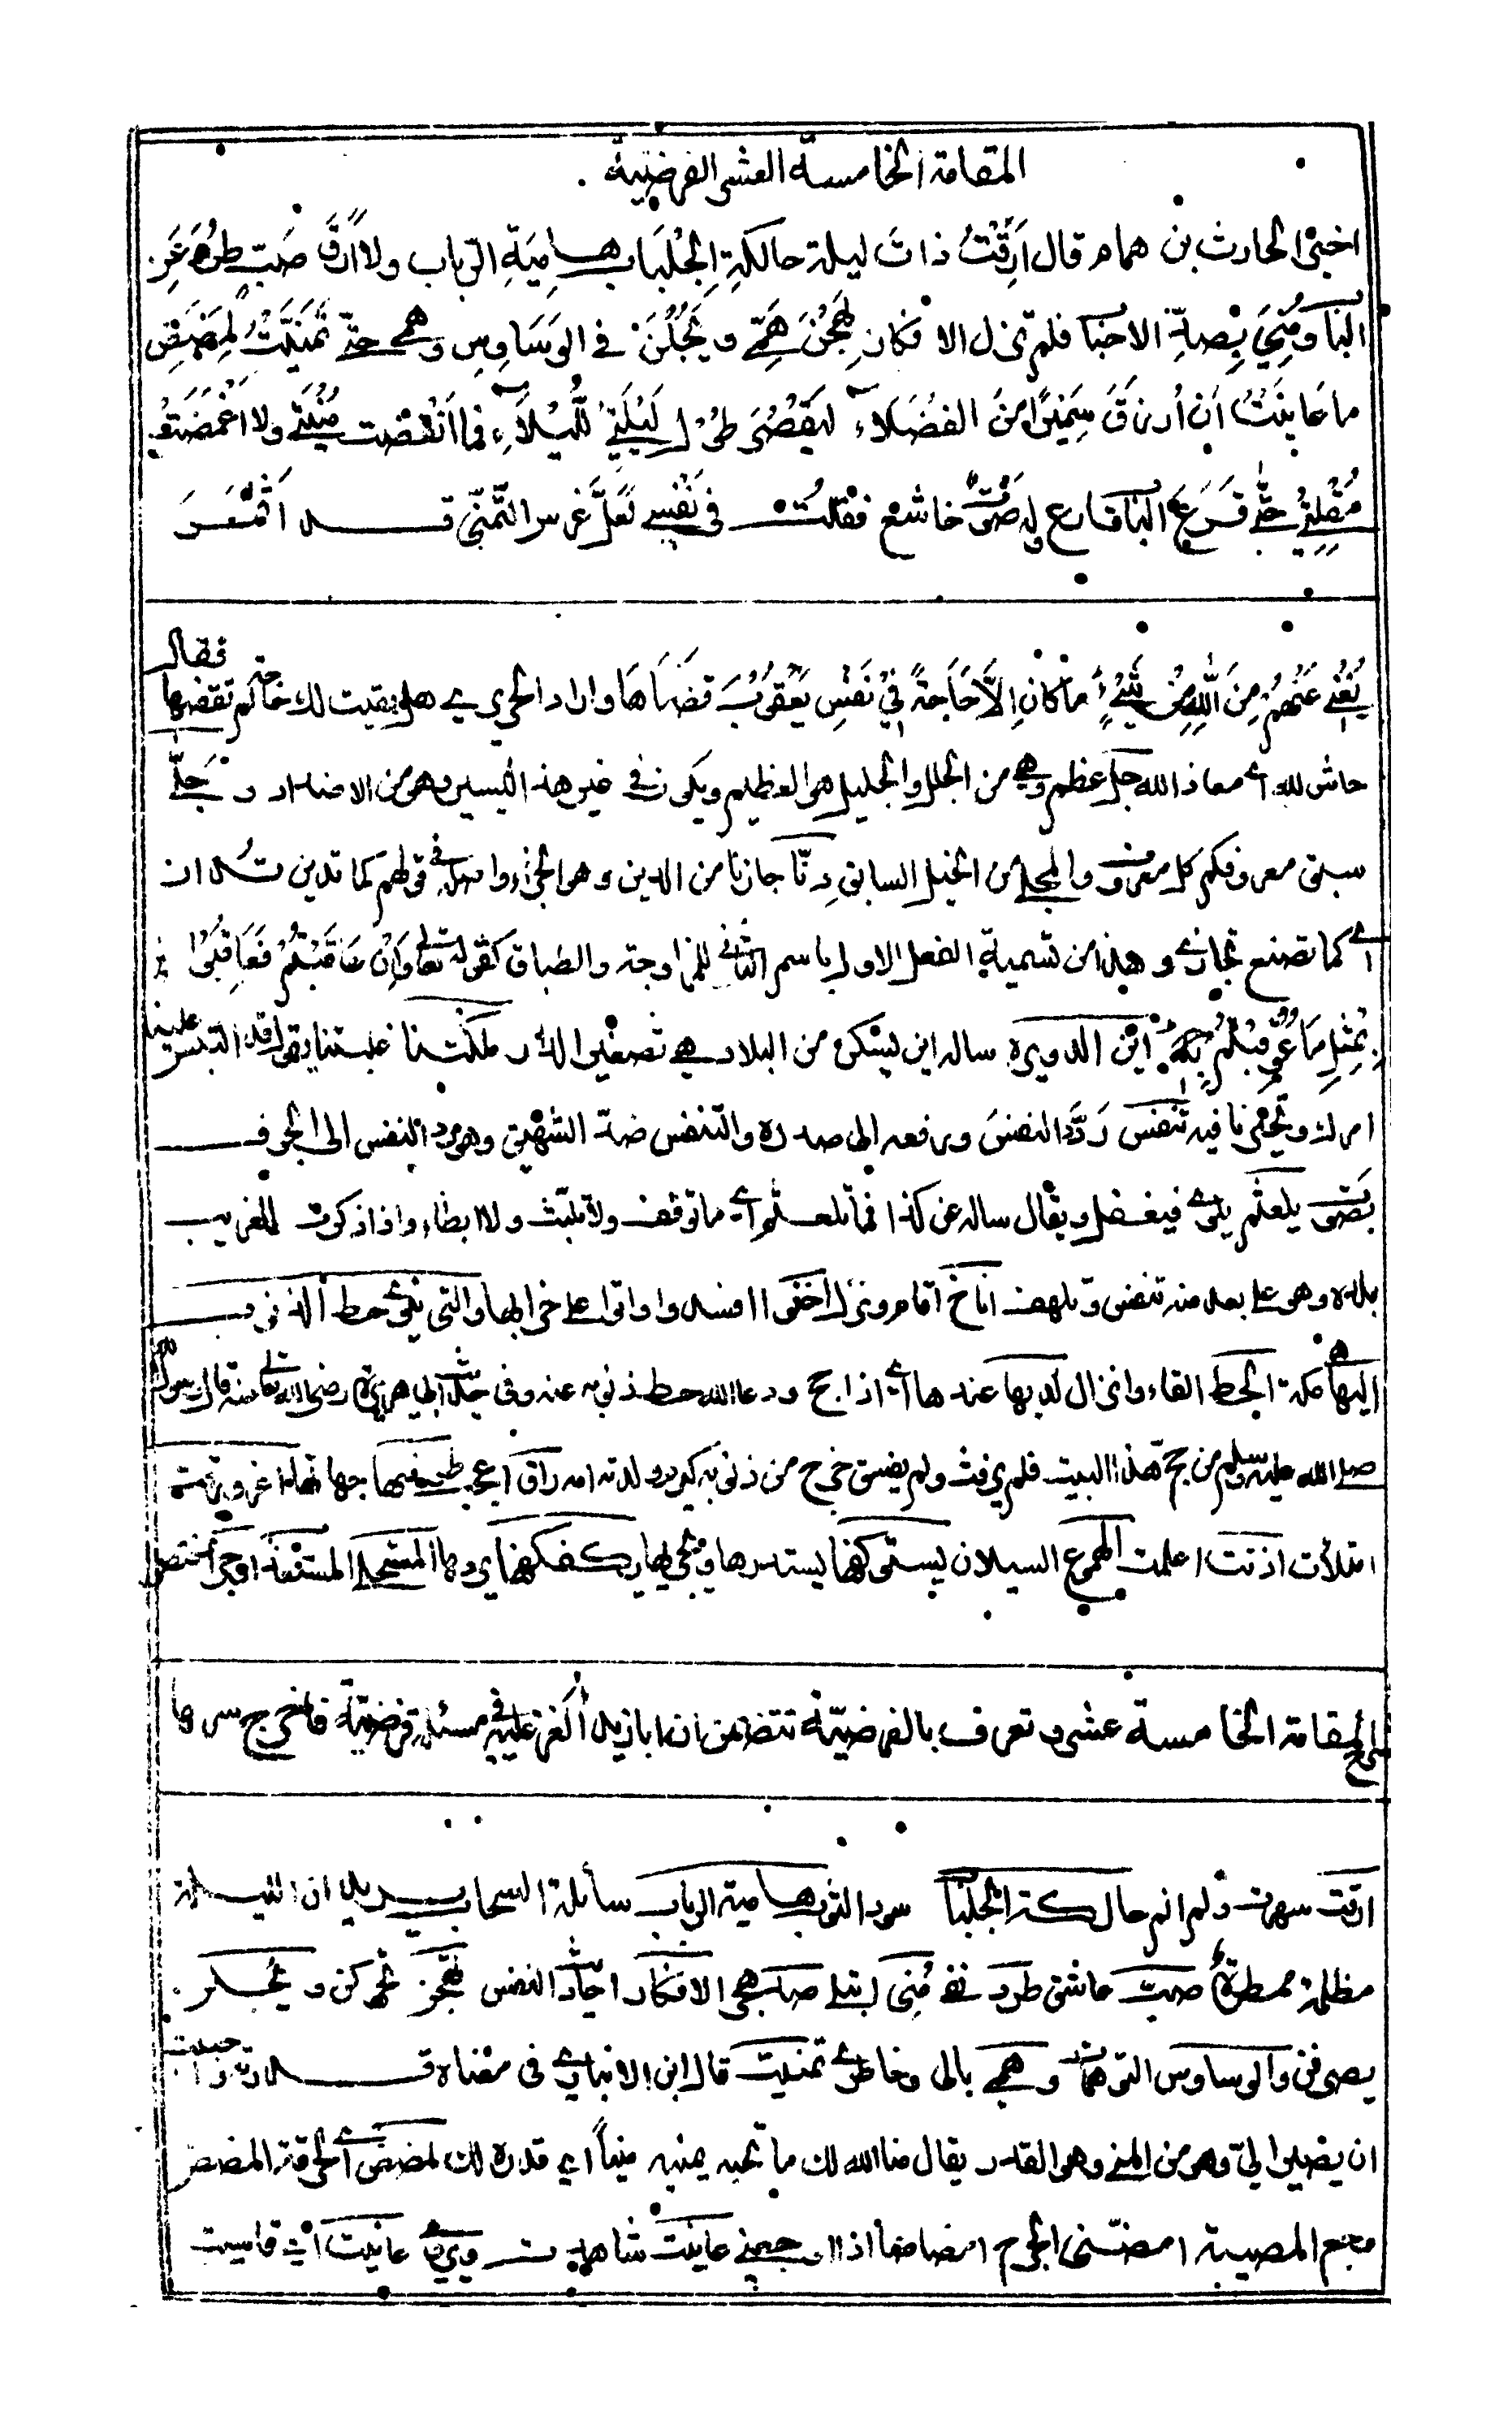 المقامة الخامسة العشر الفرضية
اخبر الحارث بن همام قال أرقت ذات ليلة حالكة الجلباب هامية الرباب ولا أرق صب طرد عن
الباب ومني بصد الاحباب فلم تزل الافكار يهجن همي ويجلن في الوساوس وهمي حتى تمنيت لمضض
ما عاينت أن أرزق سميرا من الفضلاء ليقصر طول ليلتي الليلاء فما انقضت منيتي ولا اغمضت
مقلتي حتى قرع الباب قارع له صوت خاشع فقلت في نفسي لعل غرس التمني قد اثمر
يغني عنهم من الله من شيء ما كان إلا حاجة في نفس يعقوب قضاها واراد الحريري هل بقيت لك حاجة لم تقضها فقال
حاش لله اي معاذ الله جل عظم وهي من الجلل والجليل هو العظيم ويكون في غير هذا اليسير وهو من الاضداد جلى
سبق معروفكم كل معروف والمجلى من الخيل السابق دنا جازنا من الدين وهو الجزاء واصله في قولهم كما تدين تدان
اي كما تصنع تجازى وهذا من تسمية الفعل الاول باسم الثاني للمزاوجة والطباق كقوله تعالى وإن عاقبتم فعاقبوا
بمثل ما عوقبتم به أين الدويرة ساله اين يسكن من البلاد هي تصغير الدار ملكتنا غلبتنا يقول قد التبس علينا
امرك وتحيرنا فيه تنفس ردد النفس ورفعه الى صدره والتنفس ضد الشهيق وهو رد النفس الى الجوف
بصوت يلعثم يلوي فيفصل ويقال ساله عن كذا فما تلعثم اي ما توقف ولا تلبث ولا ابطاء واذا ذكرت للغريب
بلده وهو على بعد منه تنفس وتلهف اناخ اقام ونزل اخنوا افسدوا واتوا على خرابها والتي يبغي حط الذنوب
اليها مكة الحط القاء وانزال لديها عندها اي اذا حج ودعا الله حط ذنوبه عنه وفي حديث ابي هريرة رضي الله تعالى عنه قال رسول الله
صلى الله عليه وسلم من حج هذا البيت فلم يرفث ولم يفسق خرج من ذنوبه كيوم ولدته امه راق اعجب طرفيها جهاتها اغرورقت
امتلأت اذنت اعلمت الهموع السيلان يستوكفها يستدرها ويجريها يكفكفها يردها المستحلى المستعذب اوجز اختصر
شرح المقامة الخامسة عشر وتعرف بالفرضية تتضمن ان ابا زيد ألغز عليه في مسئلة فرضية فاخرج سرها
ارقت سهرت ولم انم حالكة الجلباب سود الثوب هامية الرباب سائلة السحاب يريد ان الليلة
مظلمة ممطرة صب عاشق طرد نفي مني ابتلى صد هجر الافكار احاديث النفس يهجن يحركن ويجلن
يصرفن والوساوس التوهمات وهمي بالي وخاطري تمنيت قال ابن الانباري في معناه قدرت واحببت
ان يصير الي وهو من المني وهو القدر يقال منا الله لك ما تحبه يمنيه منيا اي قدره لك لمضض اي لحرقة المضض
وجع المصيبة امضني الجرح امضاضا اذا اوجعني عاينت شاهدت ويروى عانيت اي قاسيت